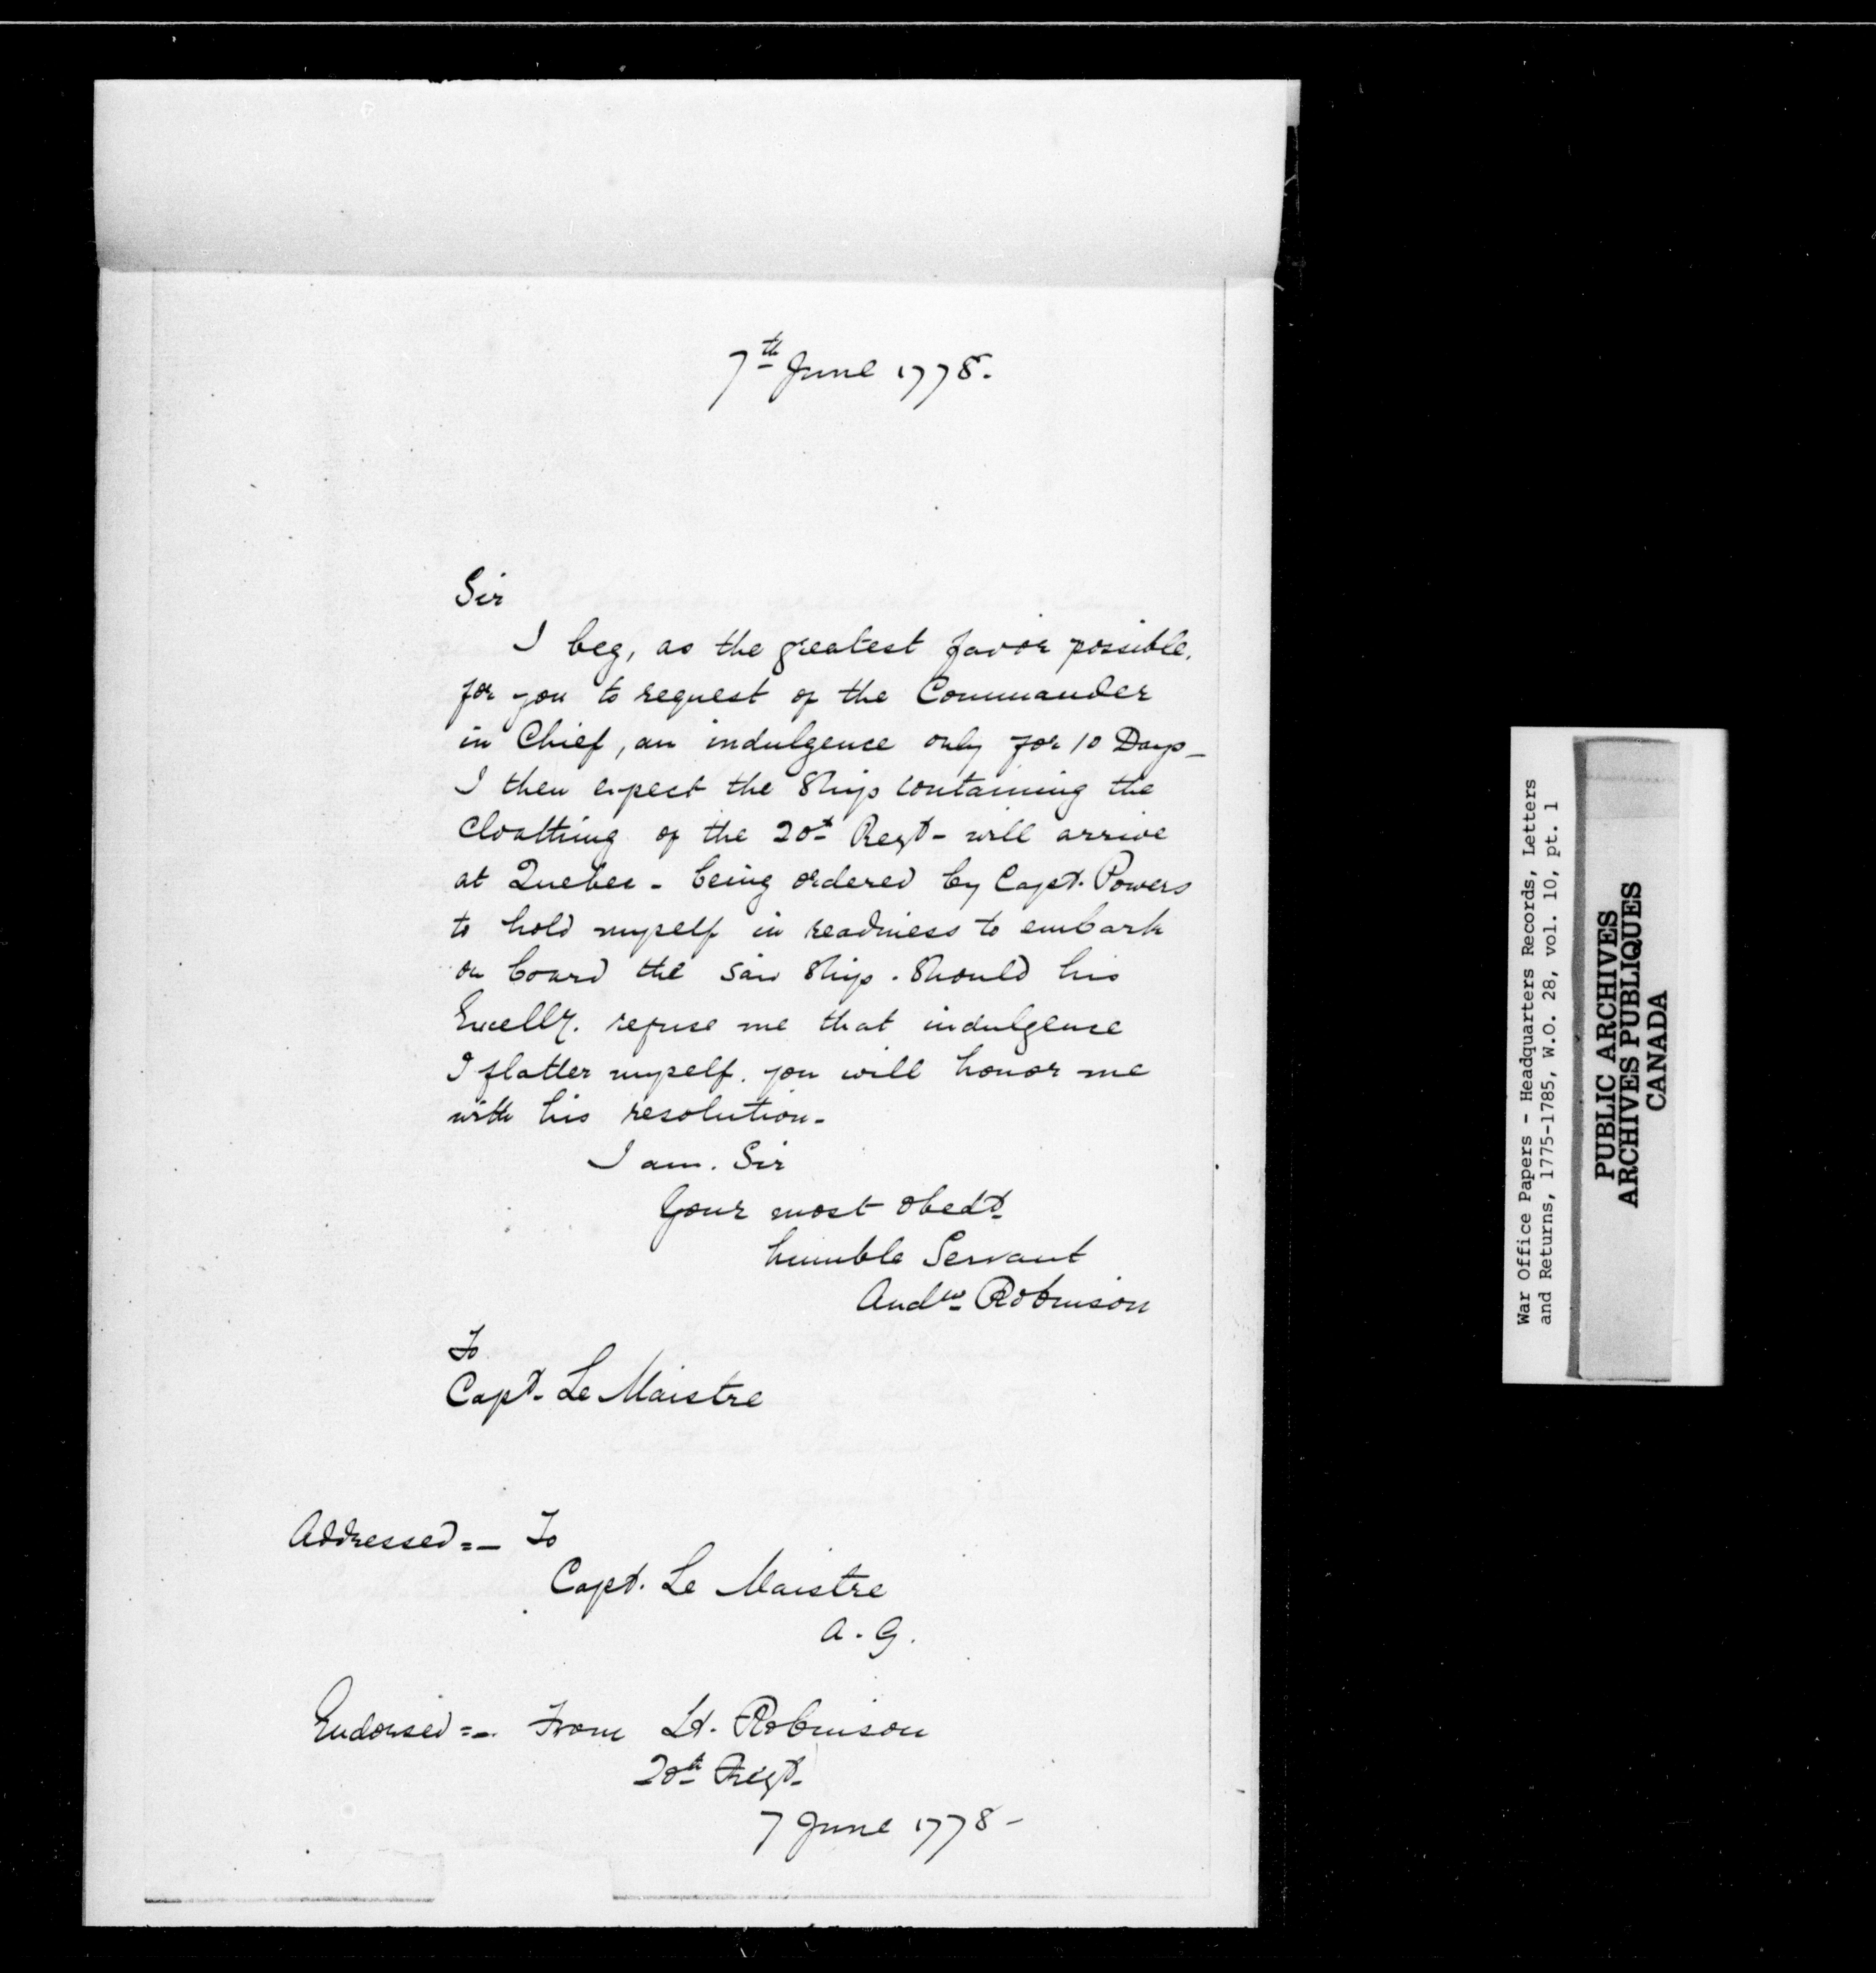 7th June 1778.
Sir
I beg, as the greatest favor possible,
for you to request of the Commander
in Chief, an indulgence only for 10 Days_
I then expect the Ship containing the
Cloathing of the 20th Regt- will arrive
at Quebec - being ordered by Capt. Powers
to hold myself in readiness to embark
on board the said Ship. Should his
Excelly. refuse me that indulgence
I flatter myself. you will honor me
with his resolution-
I am. Sir
Your most obedt
humble Servant
Andw Robinson
To
Capt- Le Maistre
Addressed=- To
Capt. Le Maistre
A. G.
Endorsed=- From Lt. Robinson
20th Regt-
7 June 1778-
War Office Papers - Headquarters Records, Letters
and Returns, 1775-1785, W.O. 28, vol. 10, pt. 1
PUBLIC ARCHIVES
ARCHIVES PUBLIQUES
CANADA